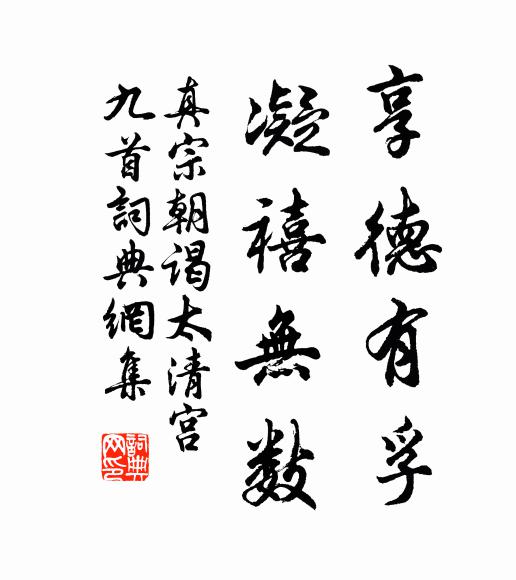 享德有孚
凝禧無数
真宗朝谒太清宫
九首詞典網集
詞典
网印